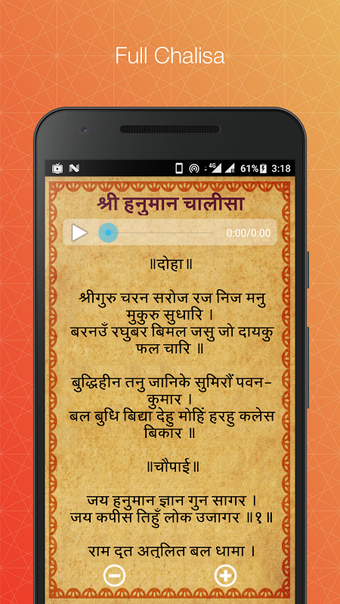 Full Chalisa
4G 61% 3:18
श्री हनुमान चालीसा
0:00/0:00
॥दोहा॥
श्रीगुरु चरन सरोज रज निज मनु
मुकुरु सुधारि ।
बरनउँ रघुबर बिमल जसु जो दायकु
फल चारि ॥
बुद्धिहीन तनु जानिके सुमिरौं पवन-
कुमार ।
बल बुधि बिद्या देहु मोहिं हरहु कलेस
बिकार ॥
॥चौपाई॥
जय हनुमान ज्ञान गुन सागर ।
जय कपीस तिहुँ लोक उजागर ॥१॥
राम दूत अतुलित बल धामा ।